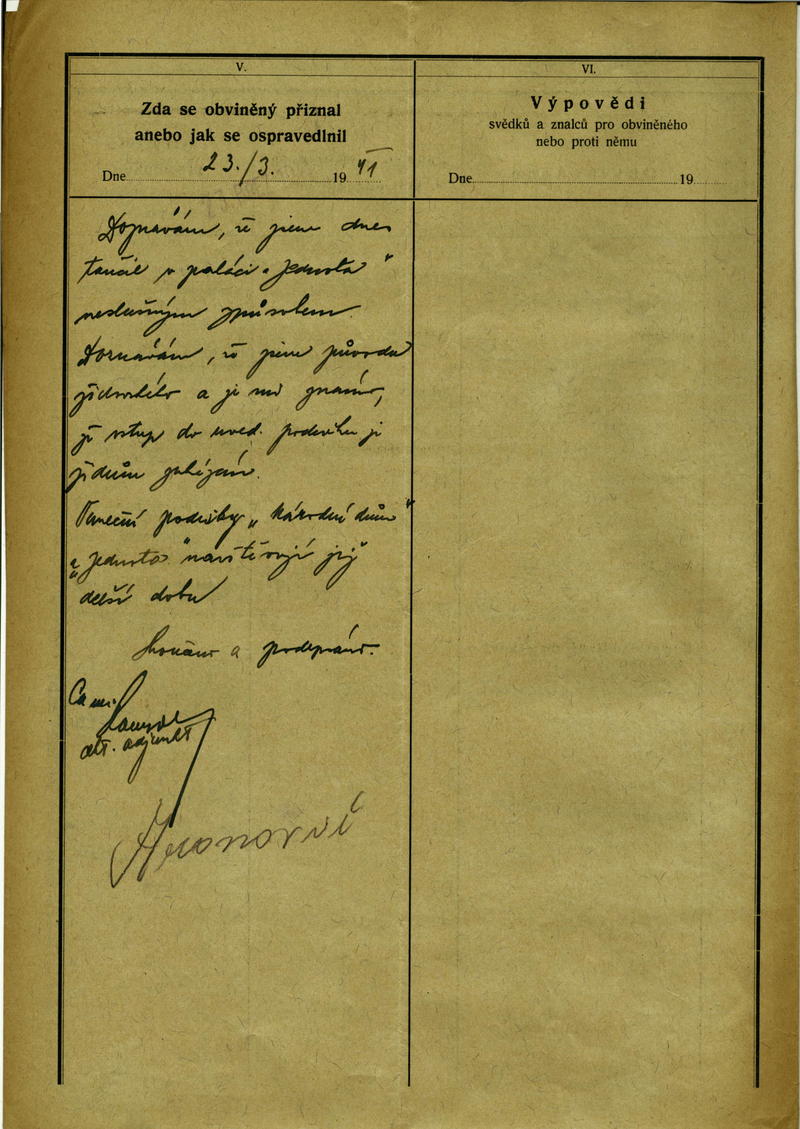 V.
Zda se obviněný přiznal
anebo jak se ospravedlnil
Dne 23./3. 1941
Doznávám, že jsem dnes
tančil v paláci „Jednota"
neslušným způsobem.
Doznávám, že jsem původu
židovského a je mi známo,
že vstup do uved. podniku je
židům zakázán.
Taneční podniky „Národní dům"
a „Jednota" navštěvuji již
delší dobu
Skončeno a podepsáno.
adjunkt
VI.
Výpovědi
svědků a znalců pro obviněného
nebo proti němu
Dne 19